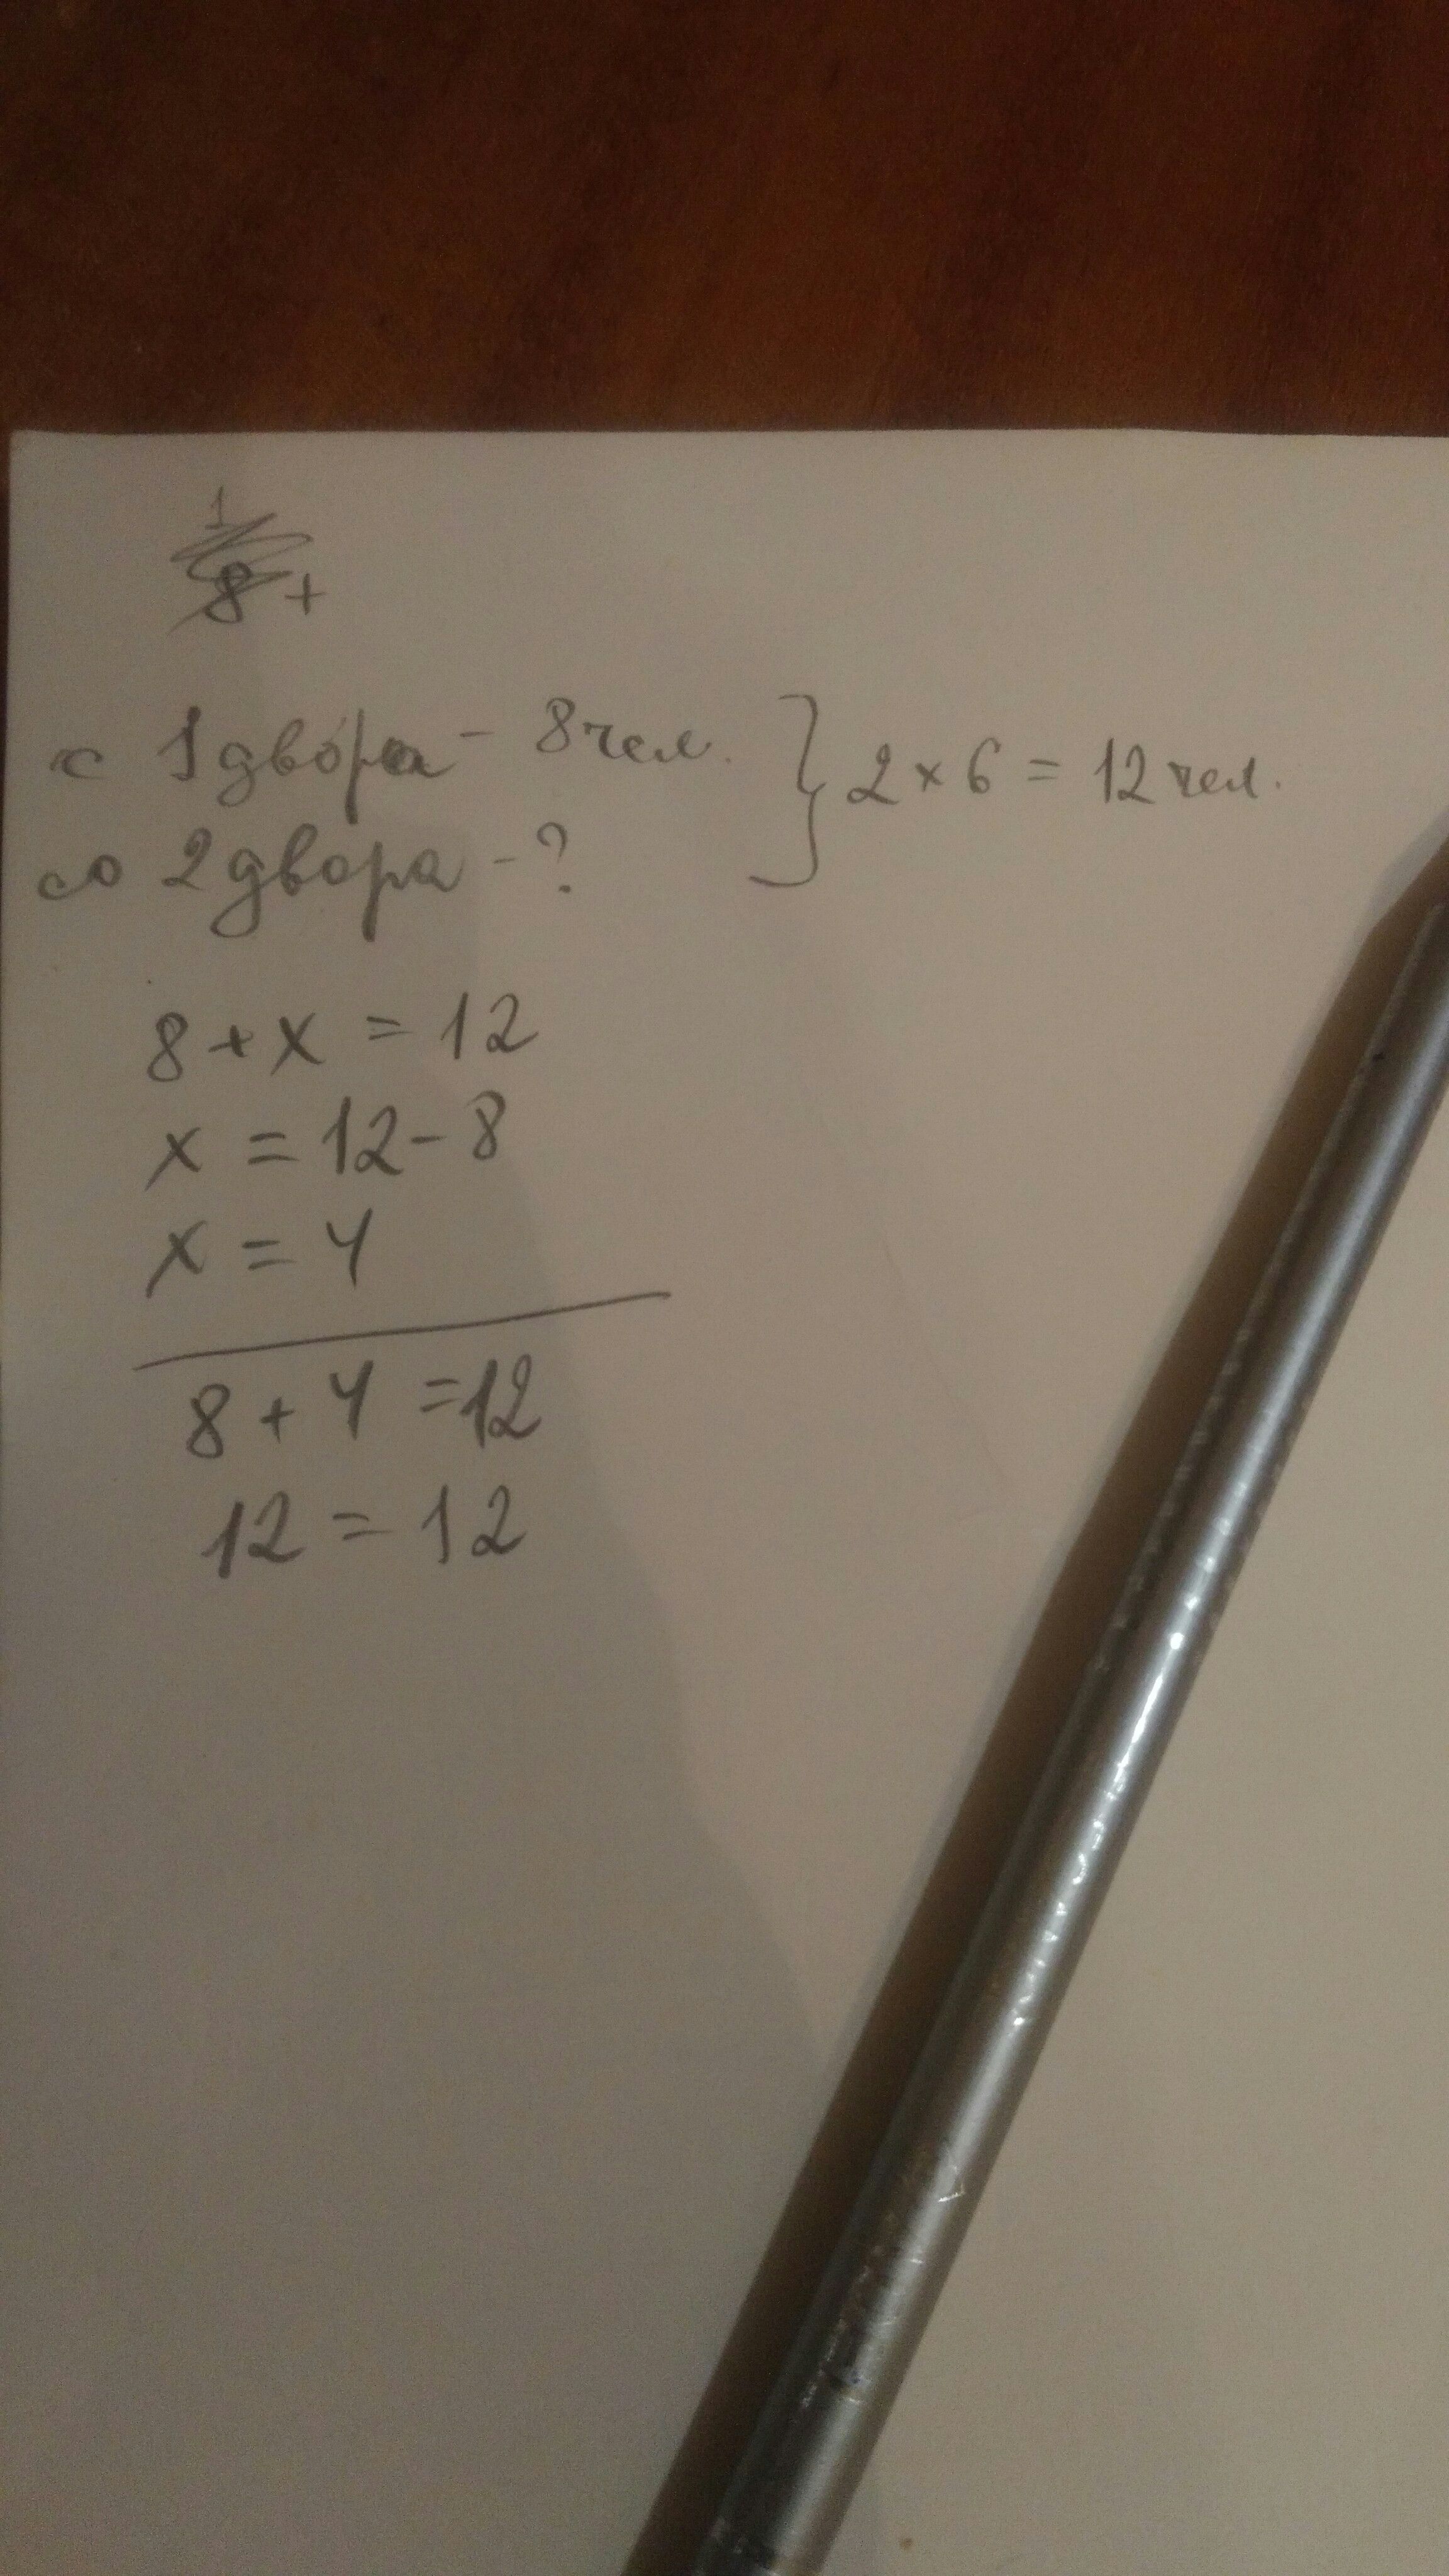 1
8 +
с 1 двора - 8 чел.
со 2 двора - ?
} 2 × 6 = 12 чел.
8 + x = 12
x = 12 - 8
x = 4
8 + 4 = 12
12 = 12